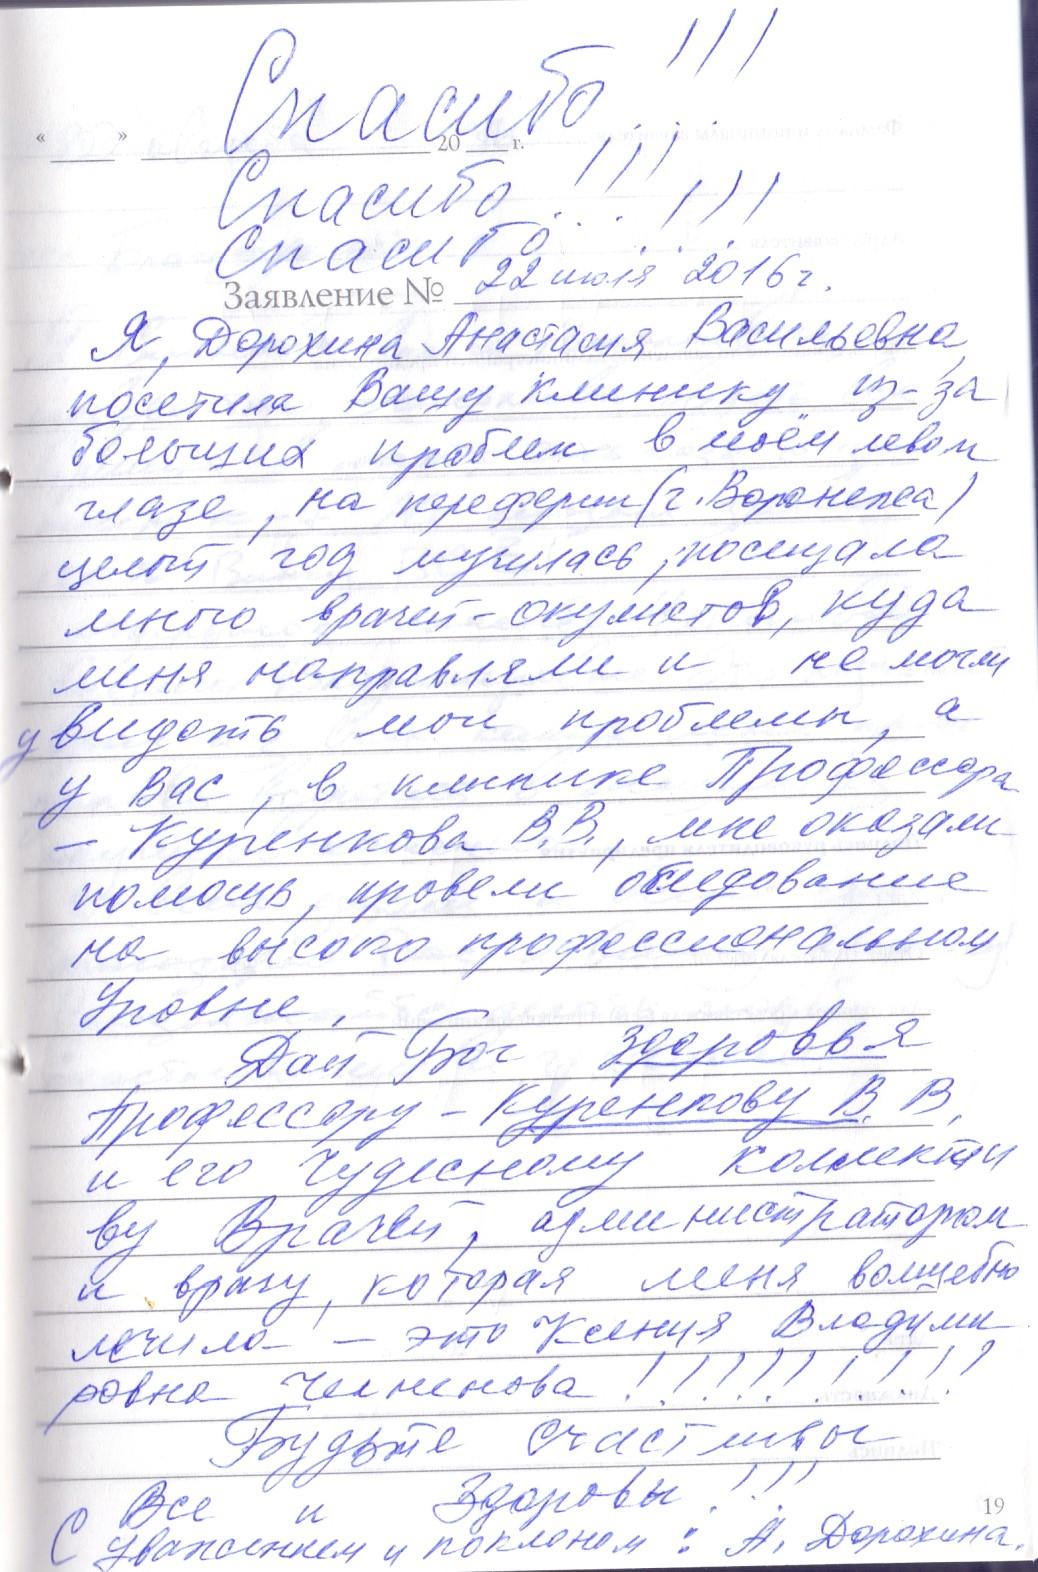 Спасибо!!!
« » 20 г.
Спасибо!!!
Спасибо!!!
Заявление № 22 июля 2016 г.
Я, Дорохина Анастасия Васильевна,
посетила Вашу клинику из-за
больших проблем в моём левом
глазе, на переферии (г. Воронежа)
целый год мучилась, посещала
много врачей-окулистов, куда
меня направляли и не могли
увидать мои проблемы, а
у Вас, в клинике Профессора
- Куренкова В.В., мне оказали
помощь, провели обсидование
на высоко профессиональном
уровне.
Дай Бог здоровья
Профессору - Куренкову В. В.
и его чудесному коллекти
ву Врачей, администраторам
и врачу, которая меня волшебно
лечила - это Ксения Владими
ровна !!!!!!!!!!
Будьте счастливы
Все и Здоровы!!!
С уважением и поклоном: А. Дорохина.
19